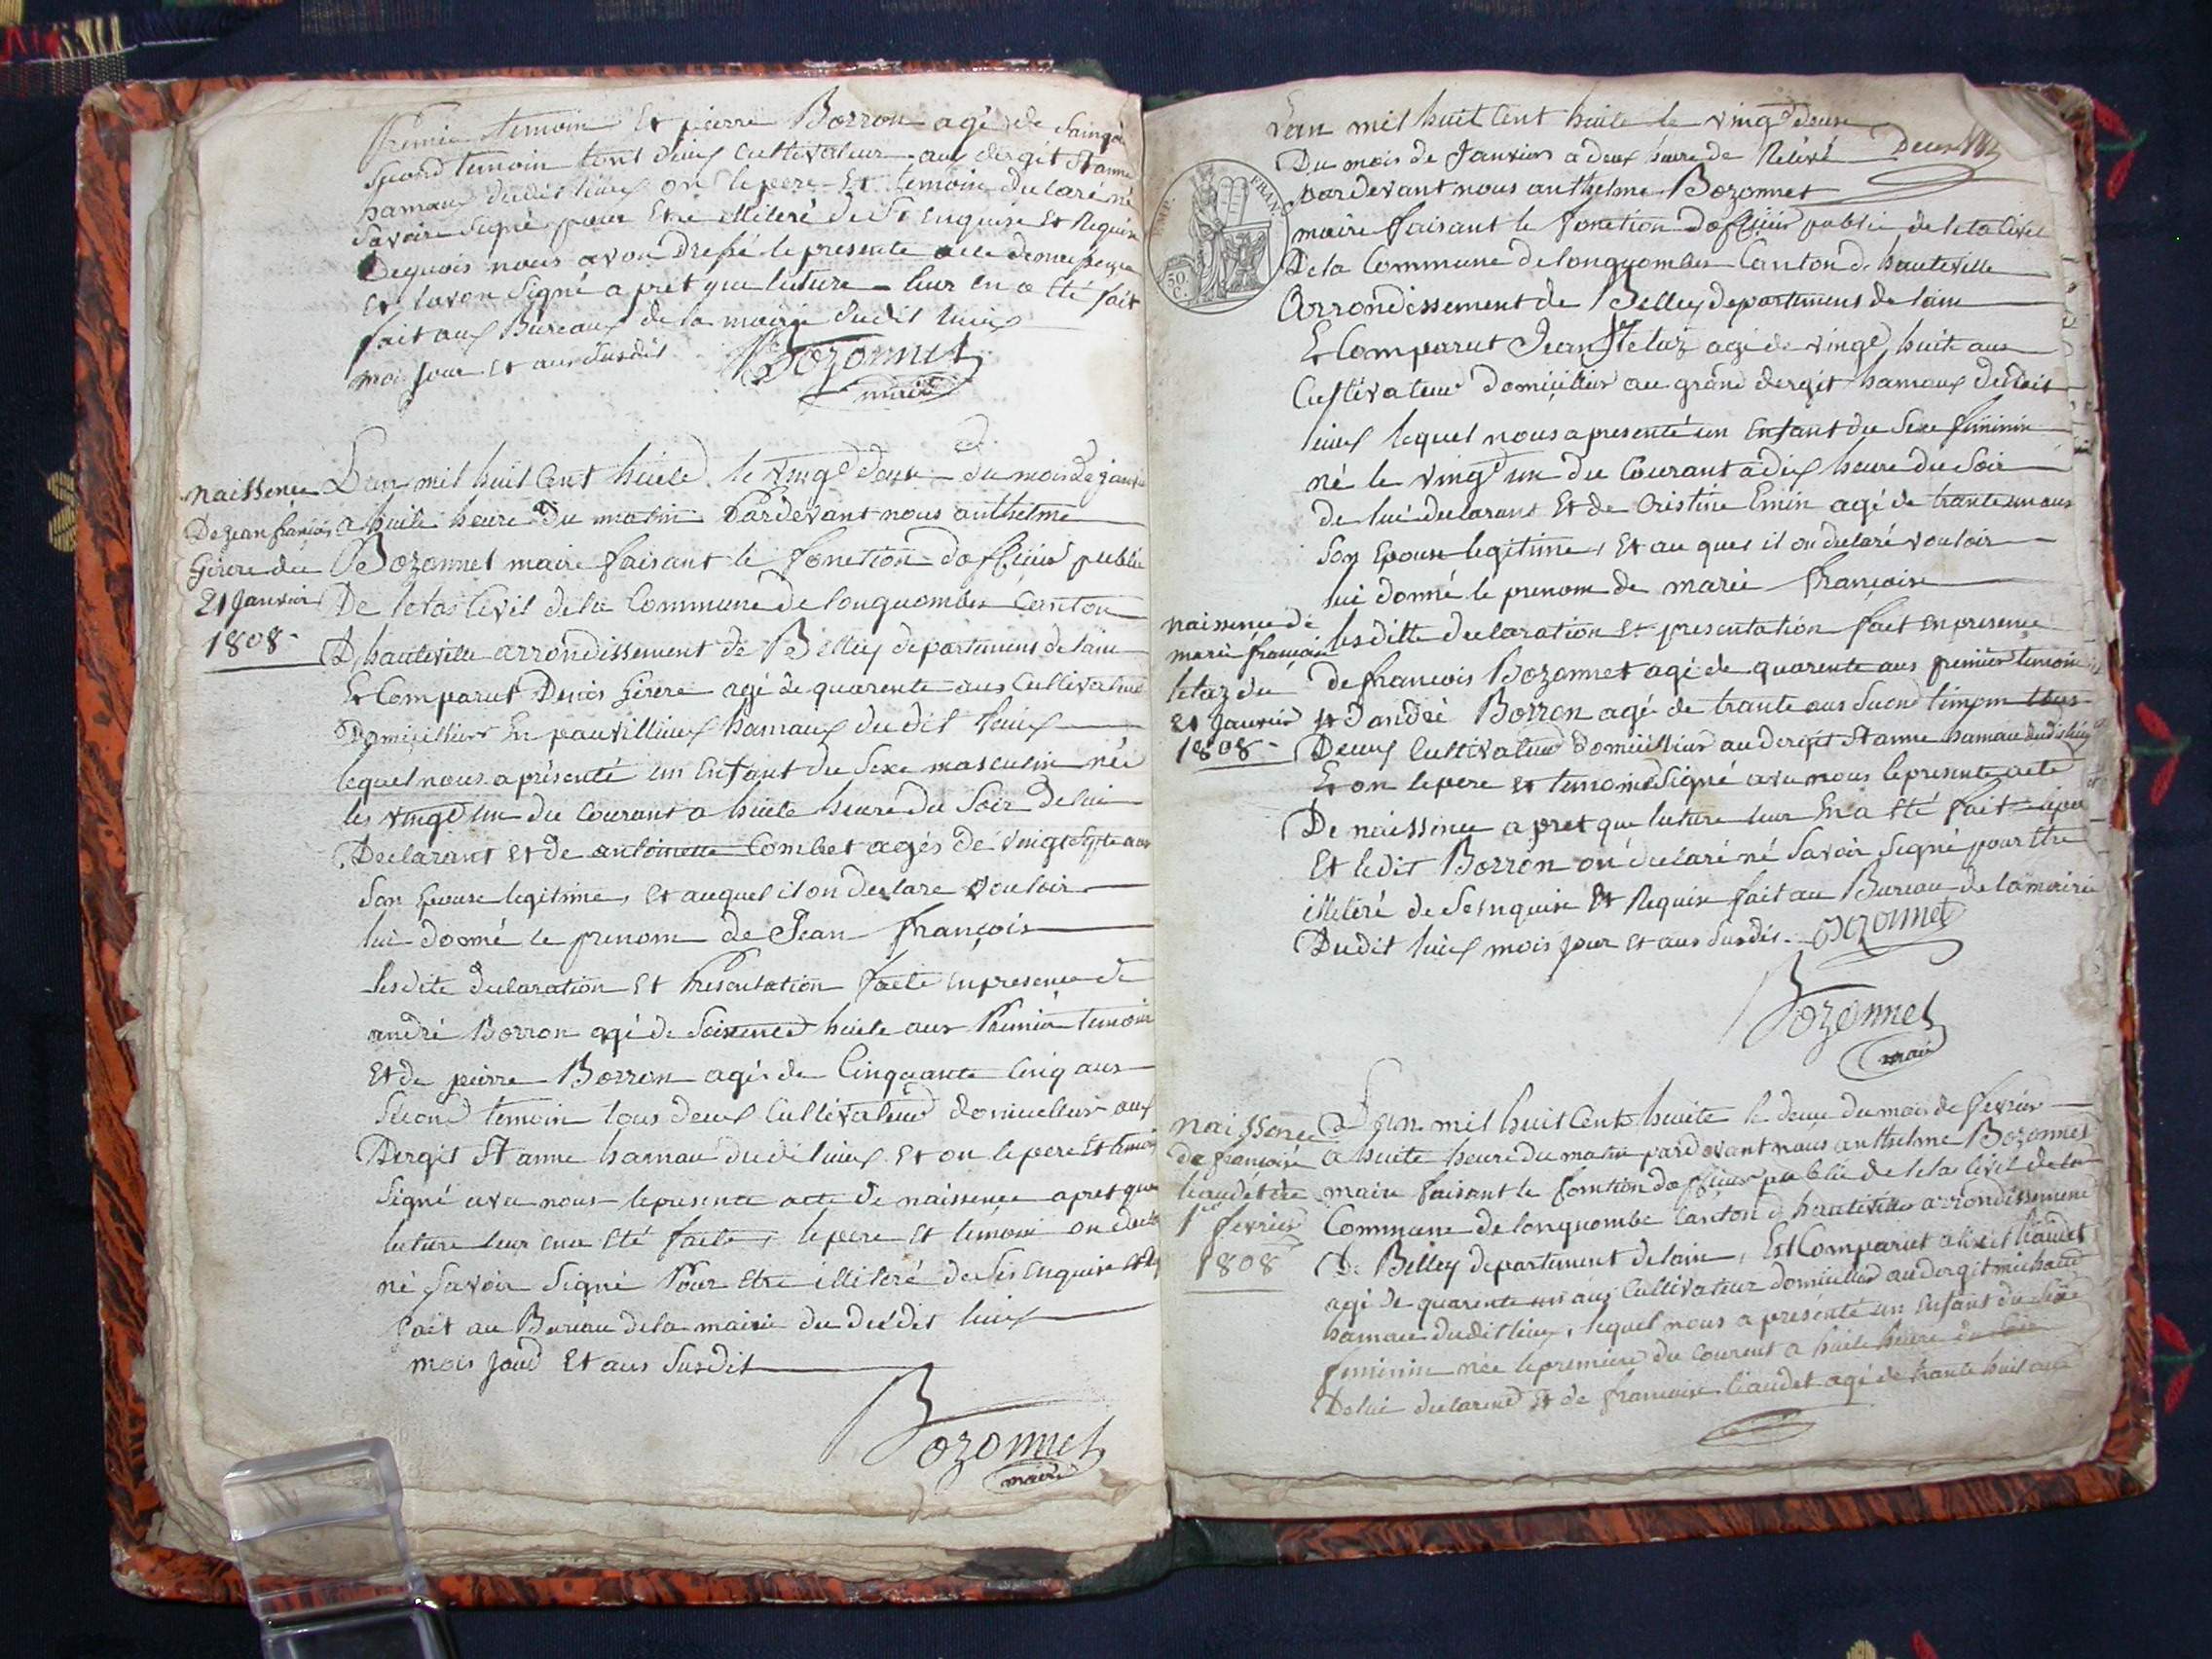 second temoin tous deux Cultivateur aux dergit St anne
hamaux dudit lieux on le pere Et temoin declaré né
Savoir Signé pour Etre illiteré de Se Enquise Et Requise
Dequois nous avon Dressé le presente acte de naissence
Et lavon Signé a prèt que luture leur en a Eté fait
fait aux Bureaux de la mairie dudit lieux
moi Jour Et aus Susdit
Bozonnet
maire
naissence
De jean françois
Gerere du
21 Janvier
1808
Lan mil huit Cent huite le vingt deux du mois de janvier
a huite heure Du matin Pardevant nous anthelme
Bozonnet maire faisant le fonction dofficier public
De letas Civil dela Commune de longuombes Canton
D hauteville arrondissement de Belley departement de lain
Et Comparut Denis Gerere agé de quarente aus Cultivateur
Domicillier En pauvillieux hamaux du dit lieux
lequel nous a présenté un Enfant du Sexe masculin née
les vingt un du Courant a huite heure du Soir de lui
Declarant et de antoinette Combet agés de vingt sept aus
Son Epouse legitime, Et auquel il on declare vouloir
lui donné le prenom de Jean françois
lesdite declaration Et Presentation faite en presence de
andré Borron agé de Soixente huite aus Premier temoin
Et de pierre Borron agés de Cinquante Cinq aus
Second temoin tous deux Cultivateur domicillier aux
Dergit St anne hamau dudi lieux Et on le pere Et temoin
Signé avec nous le presente acte de naissence apret que
luture leur en a Eté faite, le pere et temoin on declaré
né Savoir Signé Pour Etre illiteré de Ses Enquise
fait au Bureau dela mairie du dudit lieux
mois Jour Et aus Susdit
Bozonnet
maire
EMP. FRAN.
50 C.
Lan mil huit Cent huite le vingt deux
Du mois de Janvier a deux heure de Relevé
pardevant nous anthelme Bozonnet
maire faisant le fonction dofficier public de letas Civil
De la Commune de longuombes Canton de hauteville
Arrondissement de Belley departement de lain
Et Comparut Jean letaz agé de vingt huite aus
Cultivateur domicillier au grand dergit hamaux dudit
lieux lequel nous a presenté un Enfant du Sexe féminin
né le vingt un du Courant a dix heure du Soir
de lui declarant Et de Cristine Emin agé de trante un aus
Son Epouse legitime, Et au quel il on declaré vouloir
lui donné le prenom de marie françoise
naissence de
marie françoise
letaz du
21 Janvier
1808
lesditte declaration Et presentation fait en presence
de francois Bozonnet agé de quarente aus premier temoin
Et dandré Borron agé de trante aus Second temoin tous
Deux Cultivateur domicillier au dergit St anne hamau dudi lieu
Et on le pere et temoin Signé avec nous le presente acte
De naissence a pret que luture leur En a Eté fait
Et ledit Borron on declaré né Savoir Signé pour Etre
illiteré de Se Enquise Et Requise fait au Bureau de la mairie
Dudit lieux mois Jour et aus Susdit. Bozonnet
Bozonnet
maire
naissence
de françoise
liaudet du
1er fevrier
1808
Lan mil huit Cent huite le deux du mois de fevrier
a huite heure du matin pardevant nous anthelme Bozonnet
maire faisant le fonction dofficier public de letas Civil de la
Commune de longuombe Canton d hauteville arrondissement
De Belley departement de lain, Est Comparut liaudet
agé de quarente un aus Cultivateur domicillier au dergit michaud
hamau dudit lieux, lequel nous a presenté un Enfant du Sexe
feminin née le premiere du Courent a huite heure du Soir
De lui declarant Et de francoise liaudet agé de trante huit aus